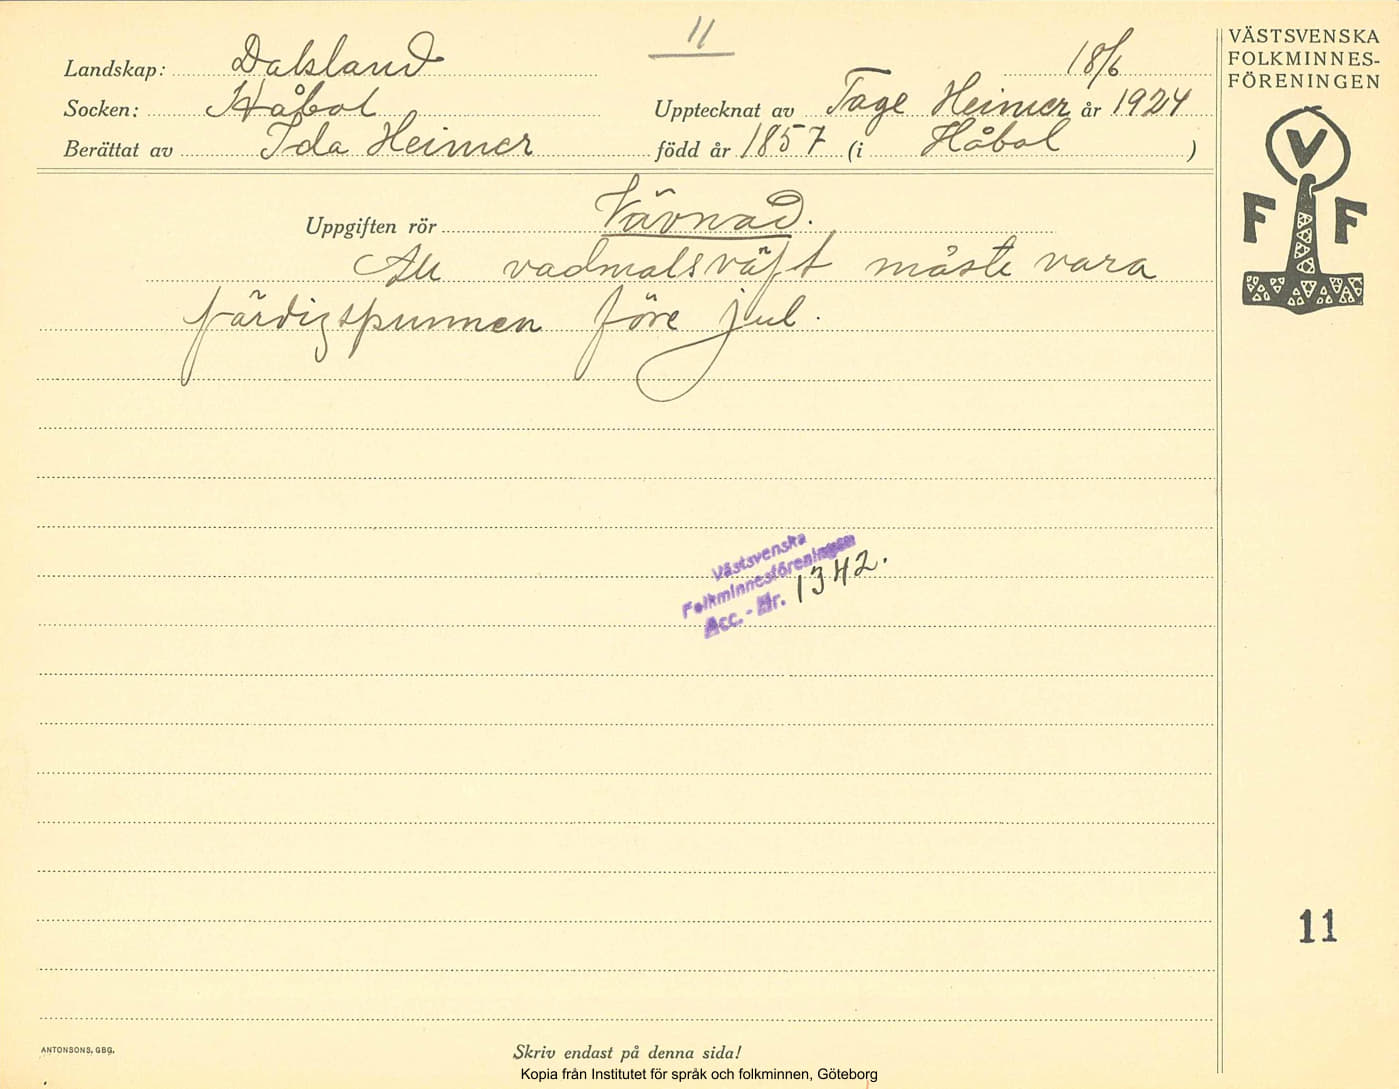 11
VÄSTSVENSKA
FOLKMINNES-
FÖRENINGEN
Landskap: Dalsland 18/6
Socken: Håbol Upptecknat av Tage Heimer år 1924
Berättat av Ida Heimer född år 1857 (i Håbol )
V
F F
Uppgiften rör Vävnad.
All vadmalsväft måste vara
färdigspunnen före jul.
Västsvenska
Folkminnesföreningen
Acc. - Nr. 1342.
11
ANTONSONS, GBG.
Skriv endast på denna sida!
Kopia från Institutet för språk och folkminnen, Göteborg